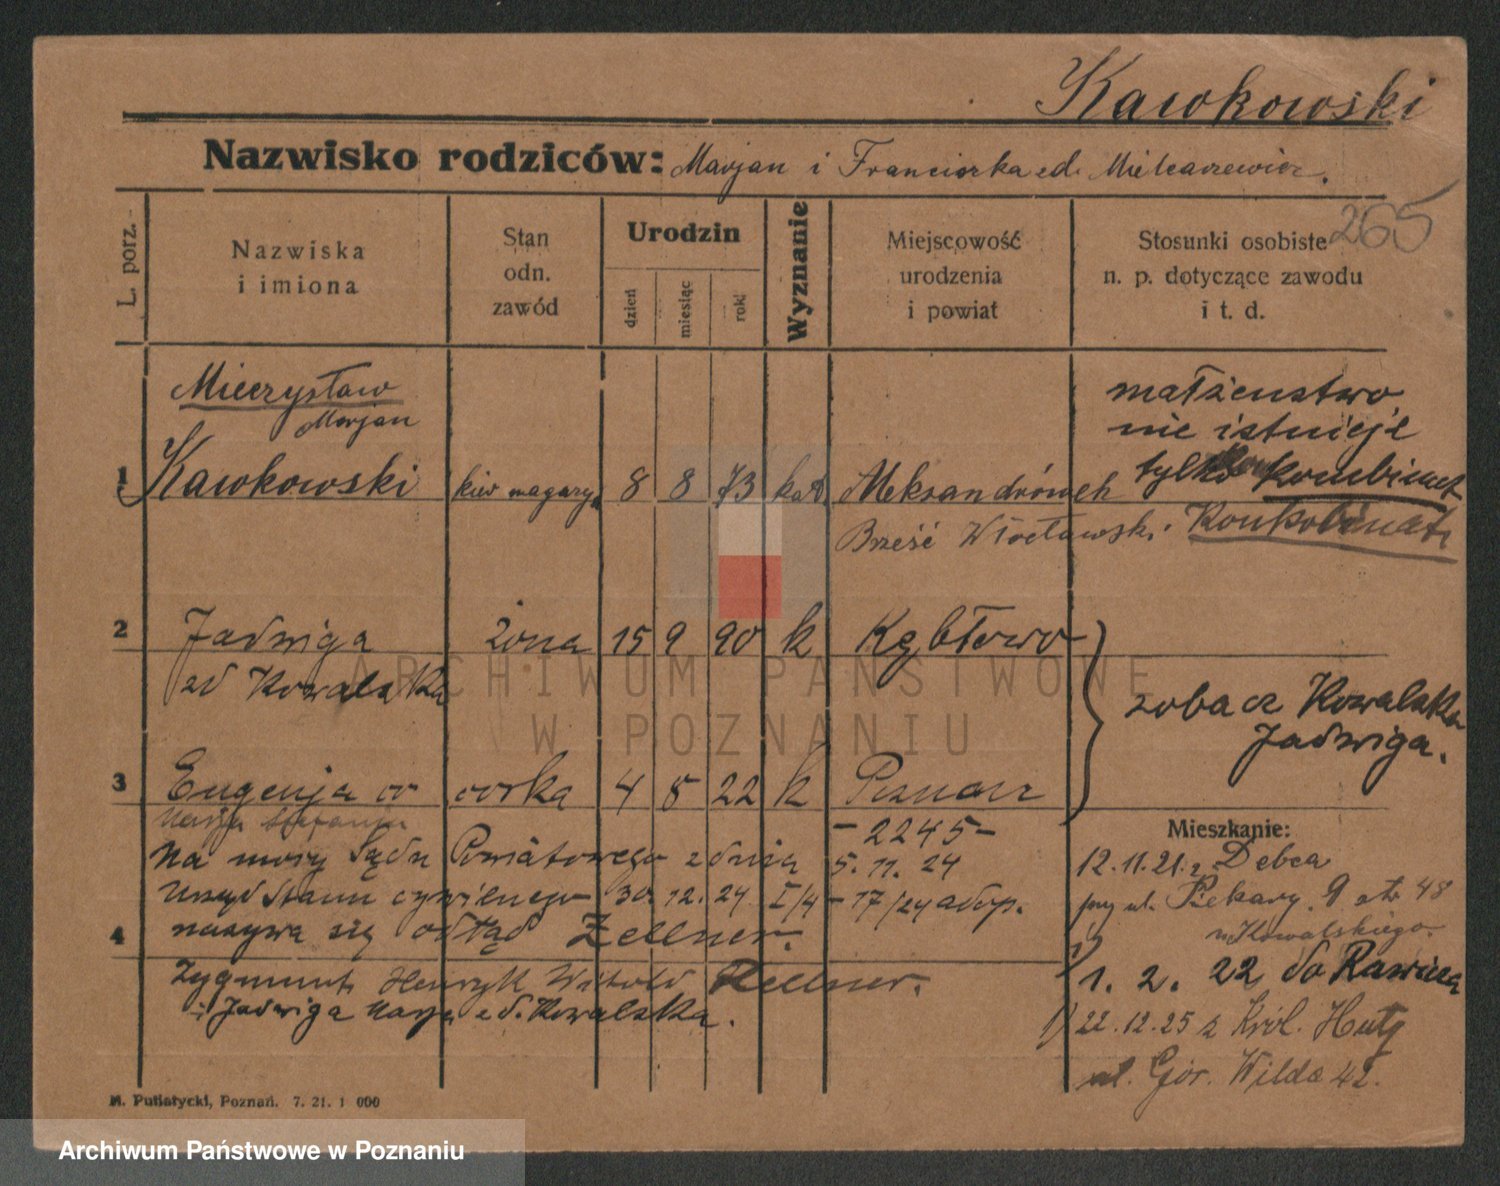 Kawkowski
Nazwisko rodziców: Marjan i Franciszka zd. Mielcarzewicz.
265
L. porz.
Nazwiska
i imiona
Stan
odn.
zawód
Urodzin
dzień
miesiąc
rok
Wyznanie
Miejscowość
urodzenia
i powiat
Stosunki osobiste
n. p. dotyczące zawodu
i t. d.
Mieczysław
Marjan
1 Kawkowski kier magazy. 8 8 73 kat Aleksandrówek
Brześć Włocławski
małżeństwo
nie istnieje
tylko konkubinat
Konkubinat
2 Jadwiga żona 15 9 90 k Kębłowo
zd Kowalska
zobacz Kowalska
Jadwiga.
3 Eugenja córka 4 5 22 k Poznań
Marja Stefanja
- 2245 -
Na mocy Sądu Powiatowego z dnia 5. 11. 24
Urząd Stanu cywilnego 30. 12. 24 I/4 - 17/24 adop.
4 nazywa się odtąd Zellner.
Zygmunt Henryk Witold Zellner.
i Jadwiga Marja z d. Kowalska.
Mieszkanie:
12.11.21. z Dębca
przy ul. Piekary 9 otw 48
u Kowalskiego
1. 2. 22 do Rawicza
22.12.25 z Król. Huty
ul. Gór. Wilda 42.
M. Putiatycki, Poznań. 7. 21. 1 000
ARCHIWUM PAŃSTWOWE
W POZNANIU
Archiwum Państwowe w Poznaniu